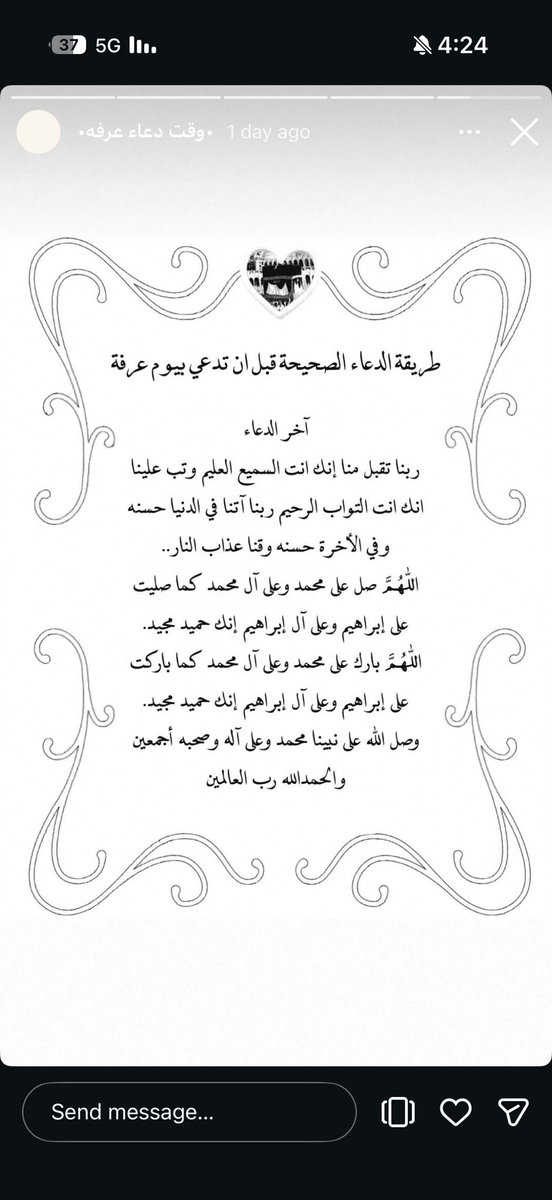 37 5G 4:24
•وقت دعاء عرفه• 1 day ago
طريقة الدعاء الصحيحة قبل ان تدعي بيوم عرفة
آخر الدعاء
ربنا تقبل منا إنك انت السميع العليم وتب علينا
انك انت التواب الرحيم ربنا آتنا في الدنيا حسنه
وفي الأخرة حسنه وقنا عذاب النار..
اللَّهُمَّ صل على محمد وعلى آل محمد كما صليت
على إبراهيم وعلى آل إبراهيم إنك حميد مجيد.
اللَّهُمَّ بارك على محمد وعلى آل محمد كما باركت
على إبراهيم وعلى آل إبراهيم إنك حميد مجيد.
وصل الله على نبينا محمد وعلى آله وصحبه أجمعين
والحمدالله رب العالمين
Send message...